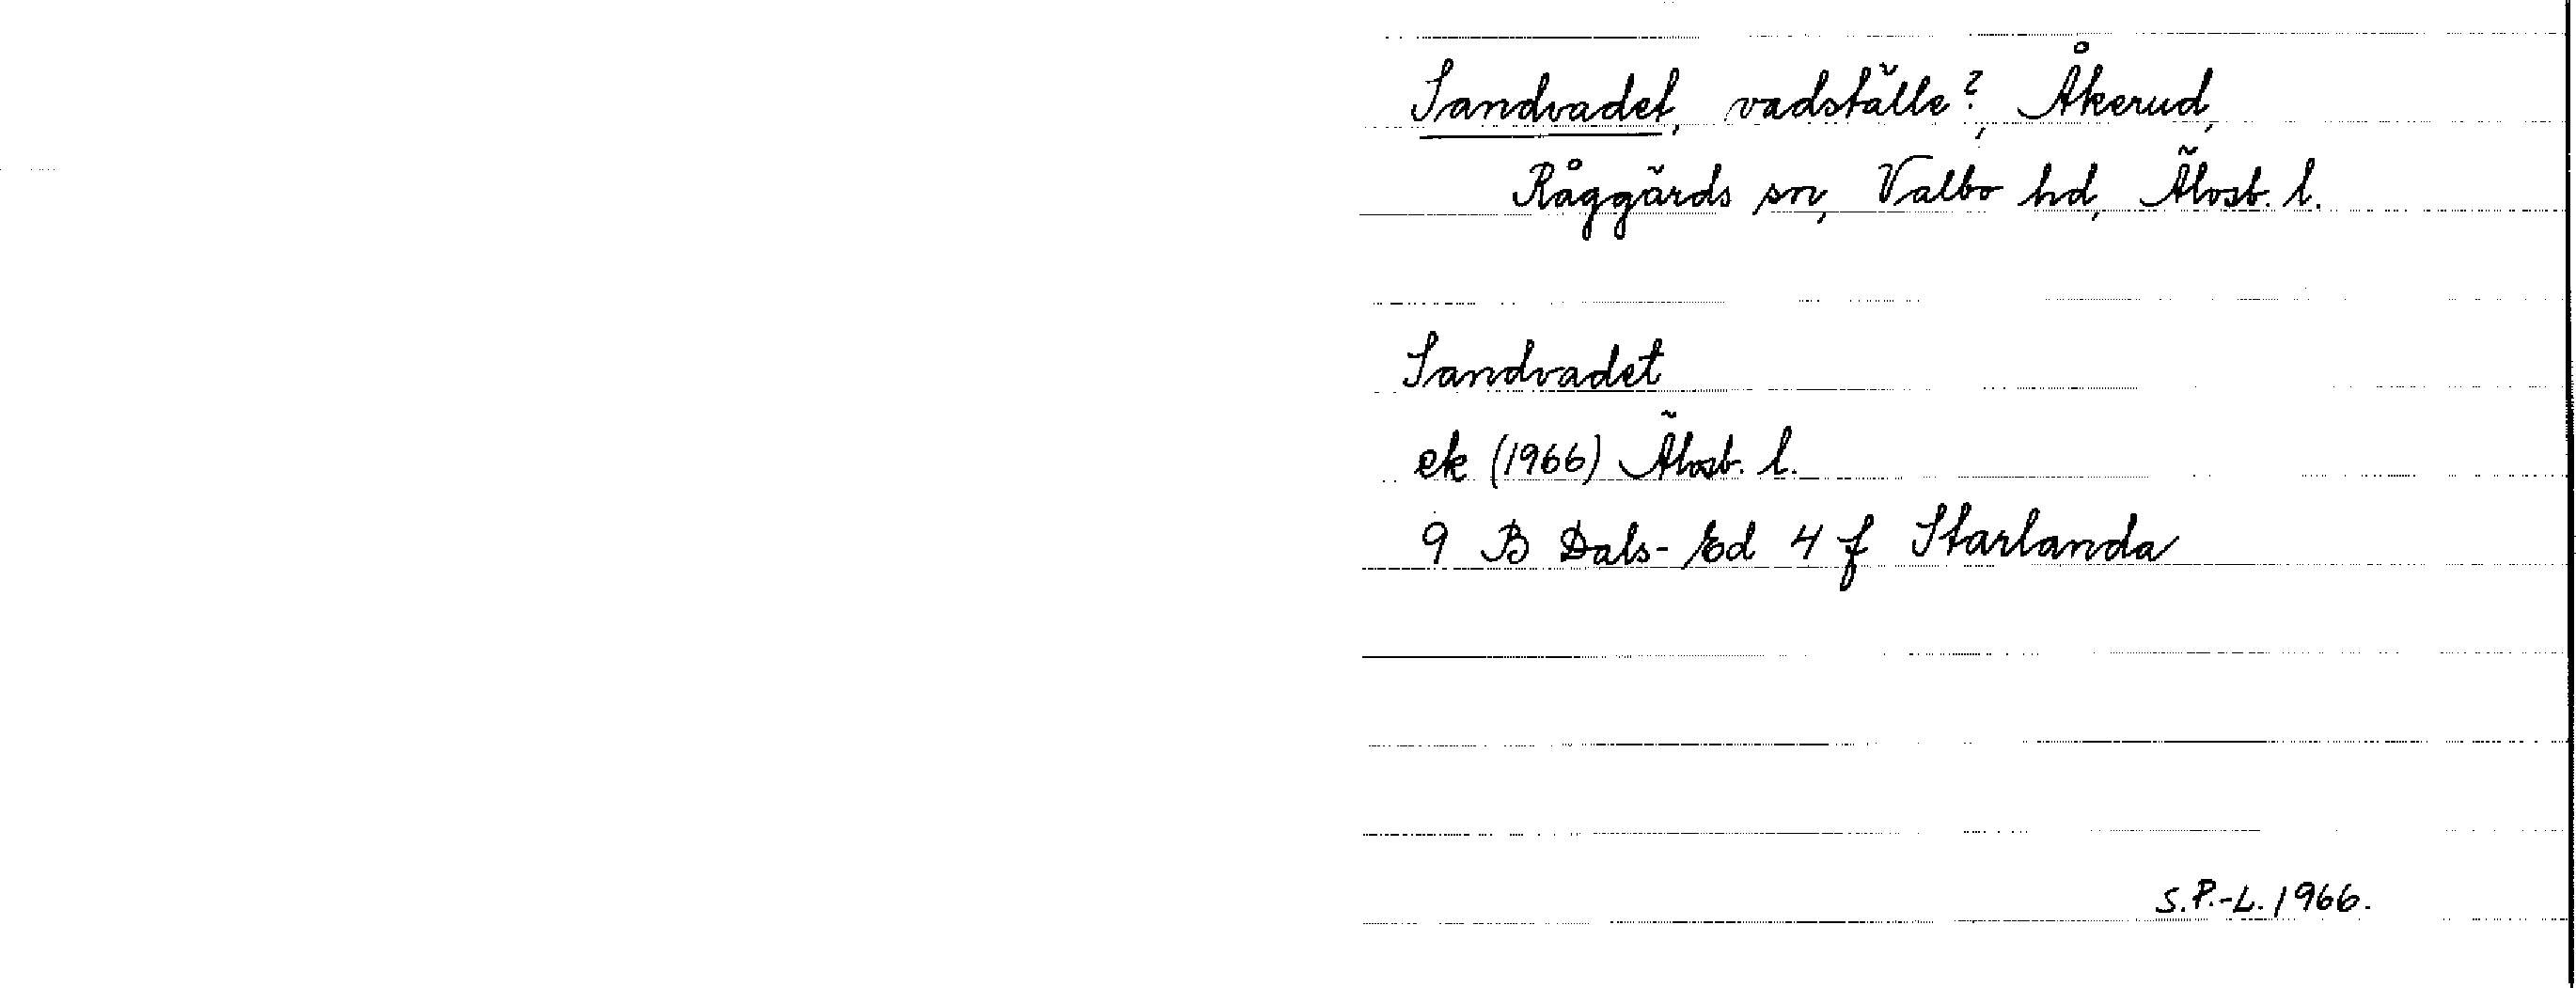 Sandvadet, vadställe?, Åkerud,
Råggärds sn, Valbo hd, Älvsb. l.
Sandvadet
ek (1966) Älvsb. l.
9 B Dals-Ed 4 f Starlanda
S.P.-L. 1966.